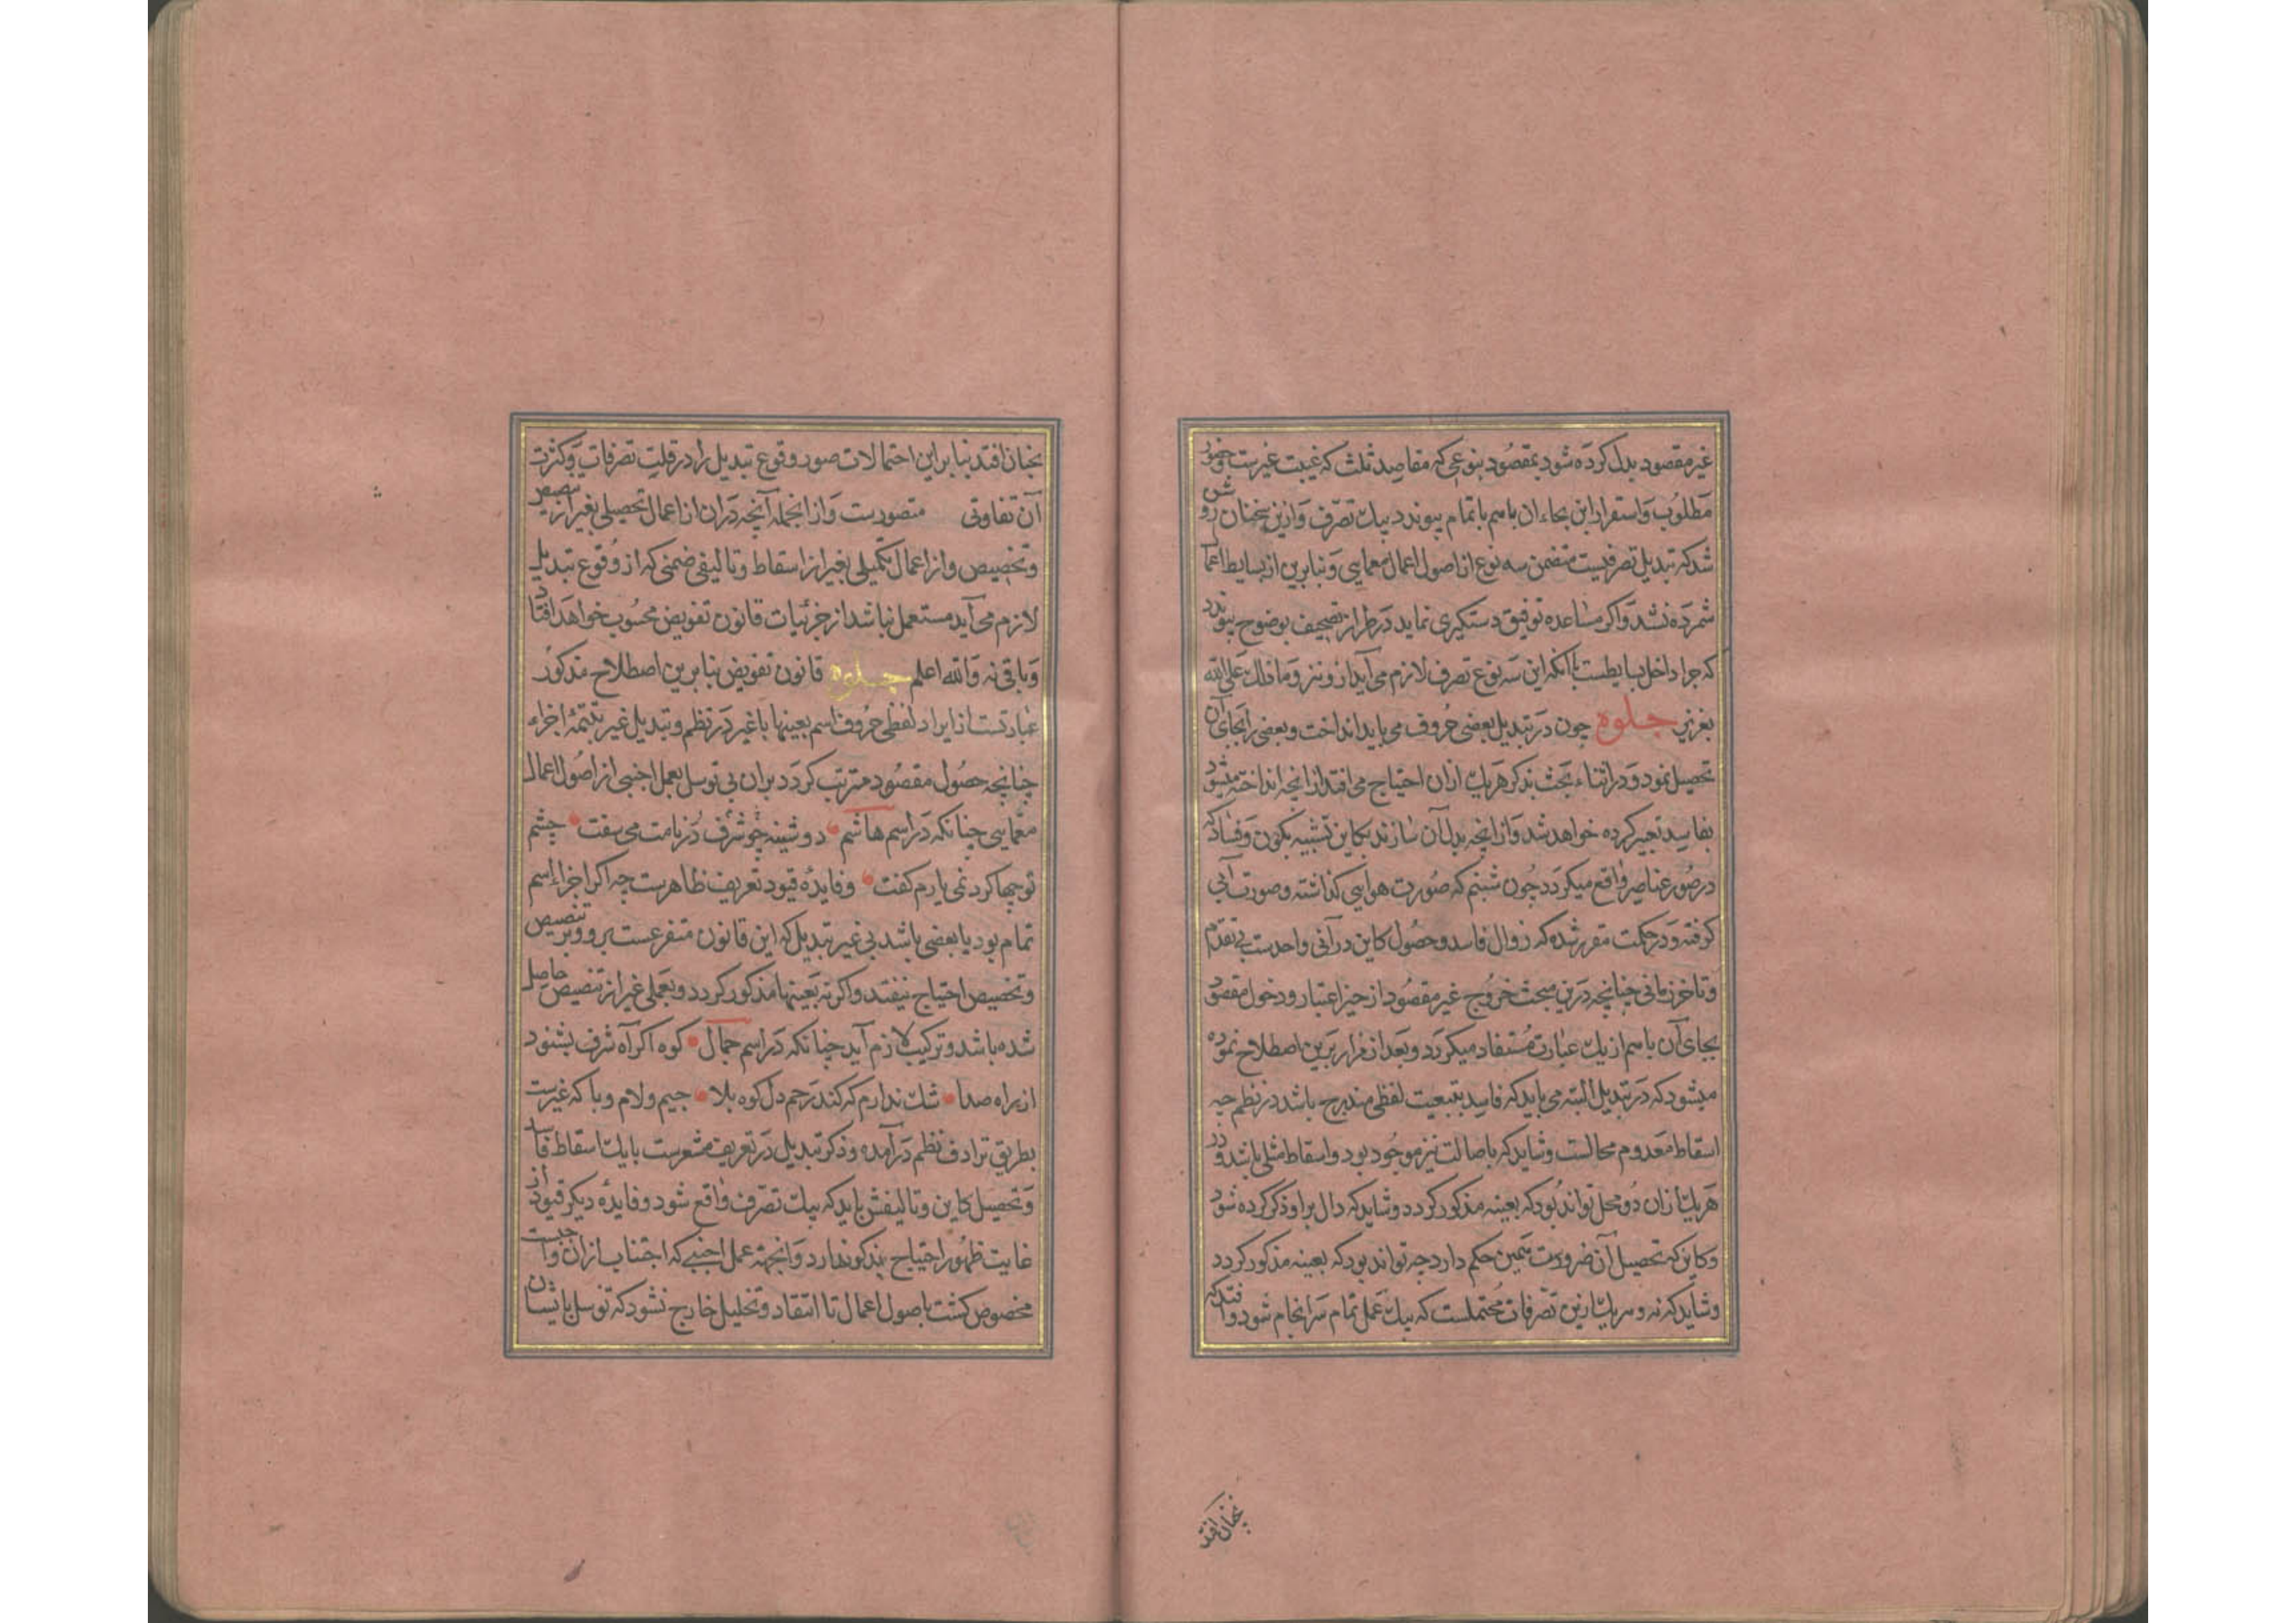 غیر مقصود بدل کرده شود بمقصود بنوعی که مقاصد ثلث که غیبت غیرست وحضور
مطلوب واستقرار این بجاء ان باسم باتمام پیوندد بیک تصرف وازین سخنان روشن
شد که تبدیل تصرفیست متضمن سه نوع از اصول اعمال معمایی وبنابرین از بسایط اعمال
شمرده نشد واکر مساعده توفیق دستکیری نماید در طراز تصحیف بوضوح پیوندد
که جرا داخل بسایطست باانکه این سه نوع تصرف لازم می آید ازو نیز وما ذلک علی الله
بعزیز جلوه چون در تبدیل بعضی حروف می باید انداخت وبعضی را بجای آن
تحصیل نمود ودر اثناء بحث بذکر هریک ازان احتیاج می افتد ازانچه انداخته میشود
بفاسد تعبیر کرده خواهد شد وازانچه بدل آن سازند بکاین تشبیه بکون وفساد که
در صور عناصر واقع میکردد چون شبنم که صورت هوایی کذاشته وصورت آبی
کرفته ودر حکمت مقرر شده که زوال فاسد وحصول کاین در آنی واحدست بی تقدم
وتاخر زمانی چنانچه درین مبحث خروج غیر مقصود از حیز اعتبار ودخول مقصود
بجای آن باسم از یک عبارت مستفاد میکردد وبعد از قرار برین اصطلاح نموده
میشود که در تبدیل البته می باید که فاسد بتبعیت لفظی مندرج باشد در نظم چه
اسقاط معدوم محالست وشاید که باصالت نیز موجود بود واسقاط مثلی باشد ودر
هریک ازان دو محل تواند بود که بعینه مذکور کردد وشاید که دال براو ذکر کرده شود
وکاین که تحصیل آن ضرورت همین حکم دارد چه تواند بود که بعینه مذکور کردد
وشاید که نه وهریک ازین تصرفات محتملست که بیک عمل تمام سرانجام شود وافتد که
بخنان افتد
بخنان افتد بنابراین احتمالات صور وقوع تبدیل را در قلت تصرفات وکثرت
آن تفاوتی متصورست وازانجمله آنچه دران از اعمال تحصیلی بغیر از تنصیص
وتخصیص واز اعمال تکمیلی بغیر از اسقاط وتالیفی ضمنی که از وقوع تبدیل
لازم می آید مستعمل نباشد از جزئیات قانون تفویض محسوب خواهد افتاد
وباقی نه والله اعلم جلوه قانون تفویض بنابرین اصطلاح مذکور
عبارتست از ایراد لفظی حروف اسم بعینها باغیر در نظم وتبدیل غیر بتتمهٔ اجزاء
چنانچه حصول مقصود مترتب کردد بران بی توسل بعمل اجنبی از اصول اعمال
معمایی چنانکه در اسم هاشم دوشینه چو شرف در نامت می سفت چشم
توچها کرد نمی یارم کفت وفایدهٔ قیود تعریف ظاهرست چه اکر اجزاء اسم
تمام بود یا بعضی باشد بی غیر تبدیل که این قانون متفرعست برو وبر تنصیص
وتخصیص احتیاج نیفتد واکر نه بعینها مذکور کردد وبعملی غیر از تنصیص حاصل
شده باشد وترکیب لازم آید چنانکه در اسم جمال کوه اکر آه شرف بشنود
از براه صدا شک ندارم که کند رحم دل کوه بلا جیم ولام وبا که غیرست
بطریق ترادف نظم درآمده وذکر تبدیل در تعریف مشعرست بایک اسقاط فاسد
وتحصیل کاین وتالیفش باید که بیک تصرف واقع شود وفایده دیکر قیود از
غایت ظهور احتیاج بذکر ندارد وانجهة عمل اجنبی که اجتناب ازان واجبست
مخصوص کشت باصول اعمال تا انتقاد وتحلیل خارج نشود که توسل بایشان